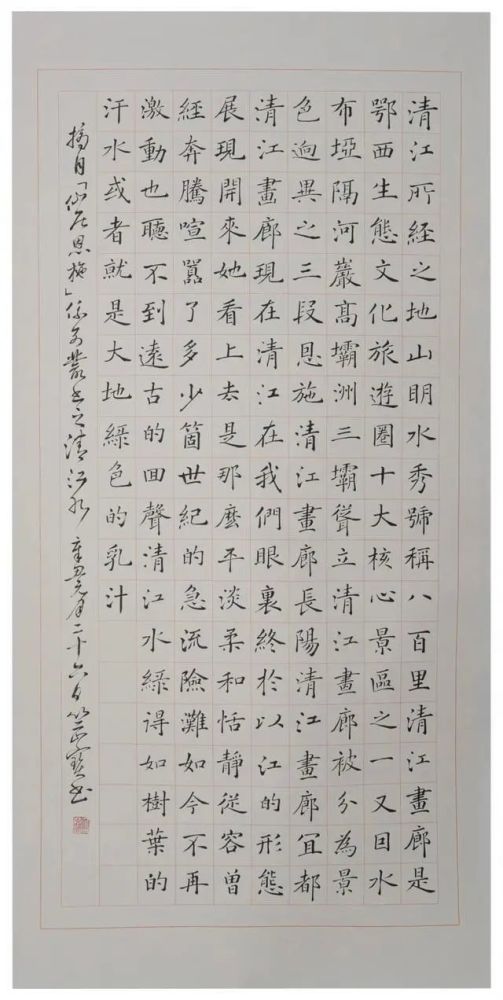 清江所經之地山明水秀號稱八百里清江畫廊是
鄂西生態文化旅遊圈十大核心景區之一又因水
布埡隔河巖高壩洲三壩聳立清江畫廊被分為景
色迥異之三段恩施清江畫廊長陽清江畫廊宜都
清江畫廊現在清江在我們眼裏終於以江的形態
展現開來她看上去是那麼平淡柔和恬靜從容曾
經奔騰喧囂了多少箇世紀的急流險灘如今不再
激動也聽不到遠古的回聲清江水綠得如樹葉的
汗水或者就是大地綠色的乳汁
摘自「仙居恩施」係列叢書之清江水 辛丑元月二十六日 正寶書